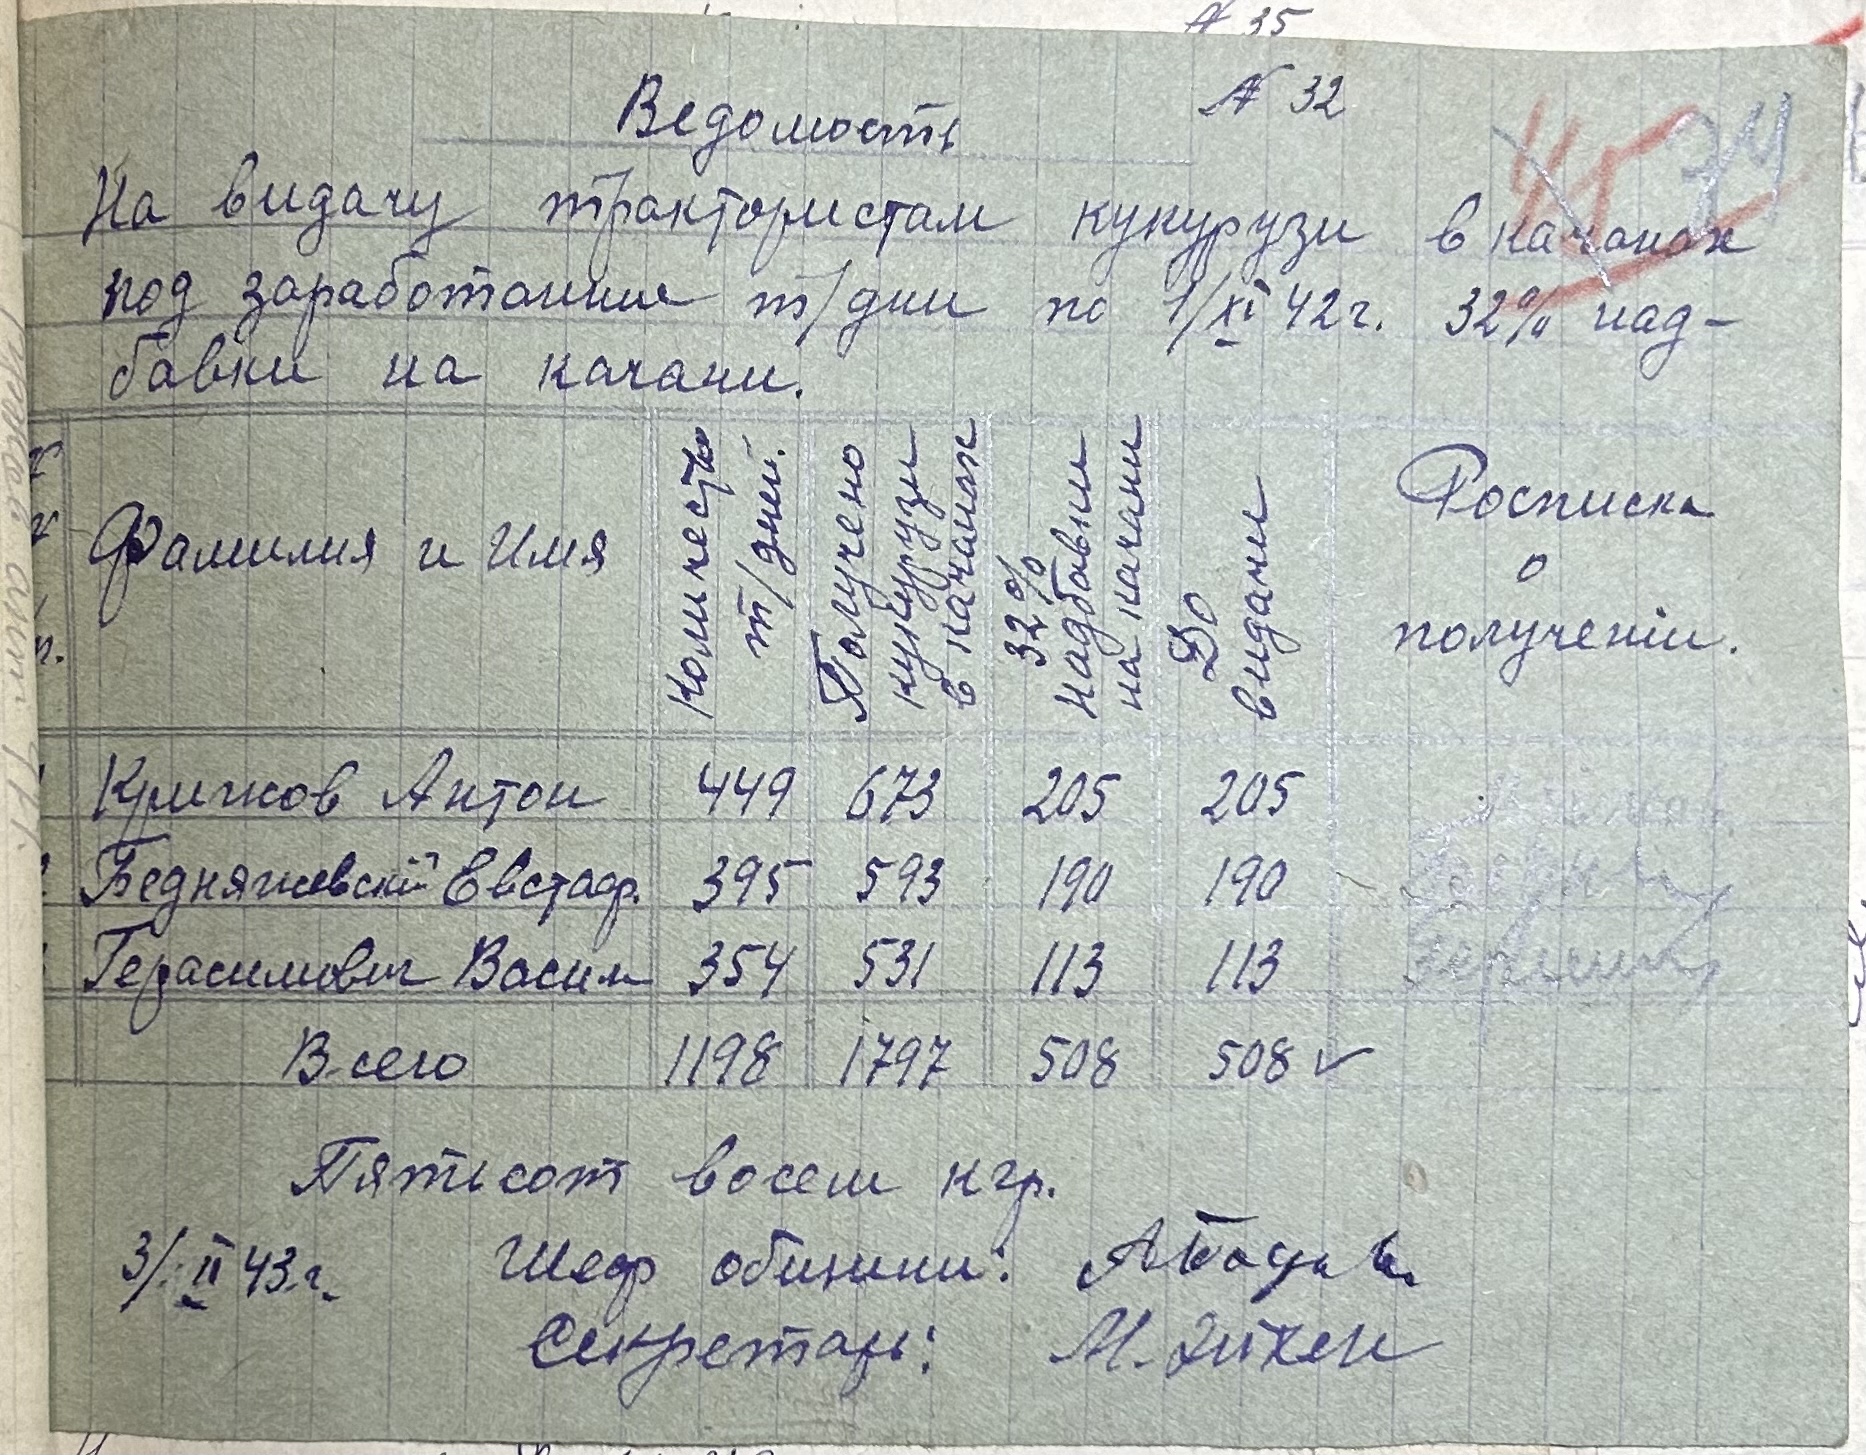 № 35
Ведомость № 32
74
На видачу трактористам кукурузи в качанах
под заработанние т/дни по 1/XI 42 г. 32% над-
бавки на качани.
Фамилия и Имя
Количество
т/дней.
Получено
кукурузи
в качанах
32%
надбавки
на качани
До
видачи
Росписка
о
получении.
Крижков Антон 449 673 205 205
Бедняжевский Евстаф. 395 593 190 190
Герасимович Васил 354 531 113 113
Всего 1198 1797 508 508 ✓
Пятьсот восем кгр.
3/II 43 г. Шеф общини:
Секретарь: